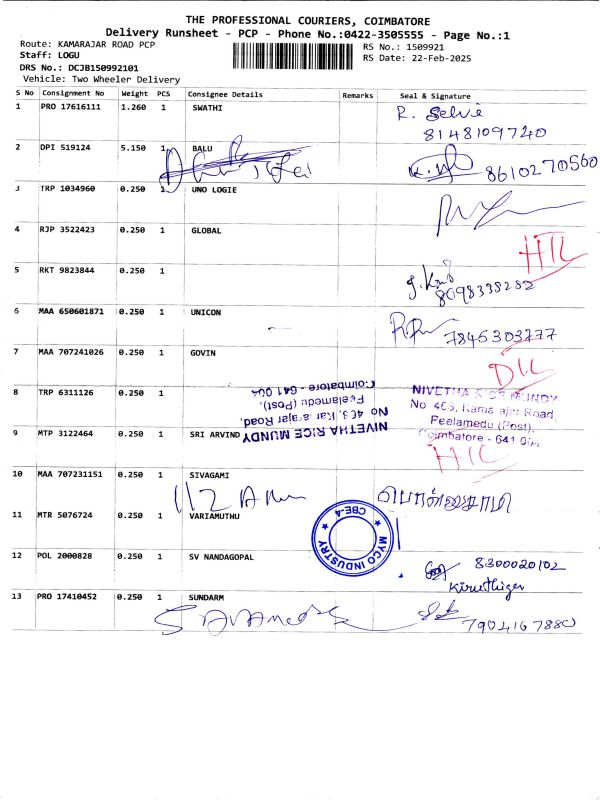 THE PROFESSIONAL COURIERS, COIMBATORE
Delivery Runsheet - PCP - Phone No.:0422-3505555 - Page No.:1
Route: KAMARAJAR ROAD PCP
RS No.: 1509921
Staff: LOGU
RS Date: 22-Feb-2025
DRS No.: DCJB150992101
Vehicle: Two Wheeler Delivery
S No Consignment No Weight PCS Consignee Details Remarks Seal & Signature
1 PRO 17616111 1.260 1 SWATHI R. Selvi
8148109740
2 DPI 519124 5.150 1 BALU
8610270560
3 TRP 1034960 0.250 1 UNO LOGIE
4 RJP 3522423 0.250 1 GLOBAL
5 RKT 9823844 0.250 1
8098338282
6 MAA 650601871 0.250 1 UNICON
7845303777
7 MAA 707241026 0.250 1 GOVIN
8 TRP 6311126 0.250 1
NIVETHA RICE MUNDY
No 463, Kamarajar Road,
Peelamedu (Post),
Coimbatore - 641 004
NIVETHA RICE MUNDY
No 463, Kamarajar Road,
Peelamedu (Post),
Coimbatore - 641 004
9 MTP 3122464 0.250 1 SRI ARVIND
10 MAA 707231151 0.250 1 SIVAGAMI
பொன்னுசாமி
11 MTR 5076724 0.250 1 VARIAMUTHU
MYCO INDUSTRY
CBE-4
12 POL 2000828 0.250 1 SV NANDAGOPAL
8300020102
13 PRO 17410452 0.250 1 SUNDARM
7904167880